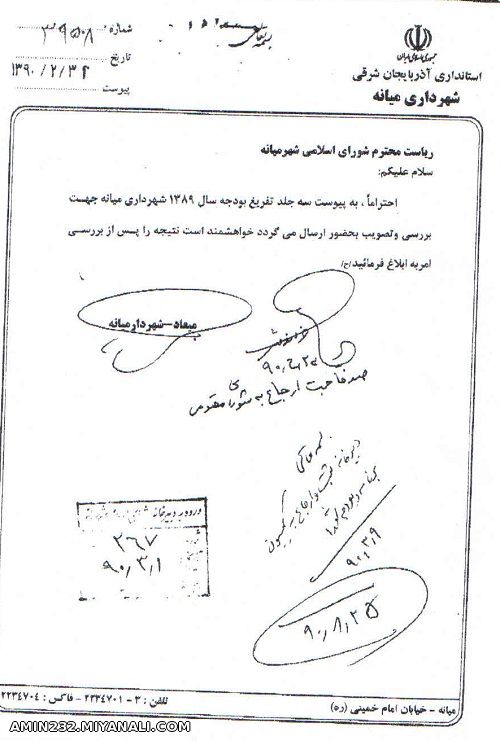 بسمه تعالی
جمهوری اسلامی ایران
استانداری آذربایجان شرقی
شهرداری میانه
شماره ۳۹۵۰۸
تاریخ ۱۳۹۰/۲/۳۱
پیوست
ریاست محترم شورای اسلامی شهرمیانه
سلام علیکم:
احتراماً ، به پیوست سه جلد تفریغ بودجه سال ۱۳۸۹ شهرداری میانه جهت
بررسی وتصویب بحضور ارسال می گردد خواهشمند است نتیجه را پس از بررسی
امربه ابلاغ فرمائید/ج/
میعاد-شهردارمیانه
ارجاع به شورای
بسمه تعالی
دبیرخانه ثبت و ارجاع به کمیسیون
۹۰,۳,۹
ورود به دبیرخانه شورای
۲۶۷
۹۰,۳,۱
۹۰,۸,۲۵
میانه - خیابان امام خمینی (ره)
تلفن : ۳ - ۲۲۳۴۷۰۱ - فاکس : ۲۲۳۴۷۰۴
AMIN232.MIYANALI.COM